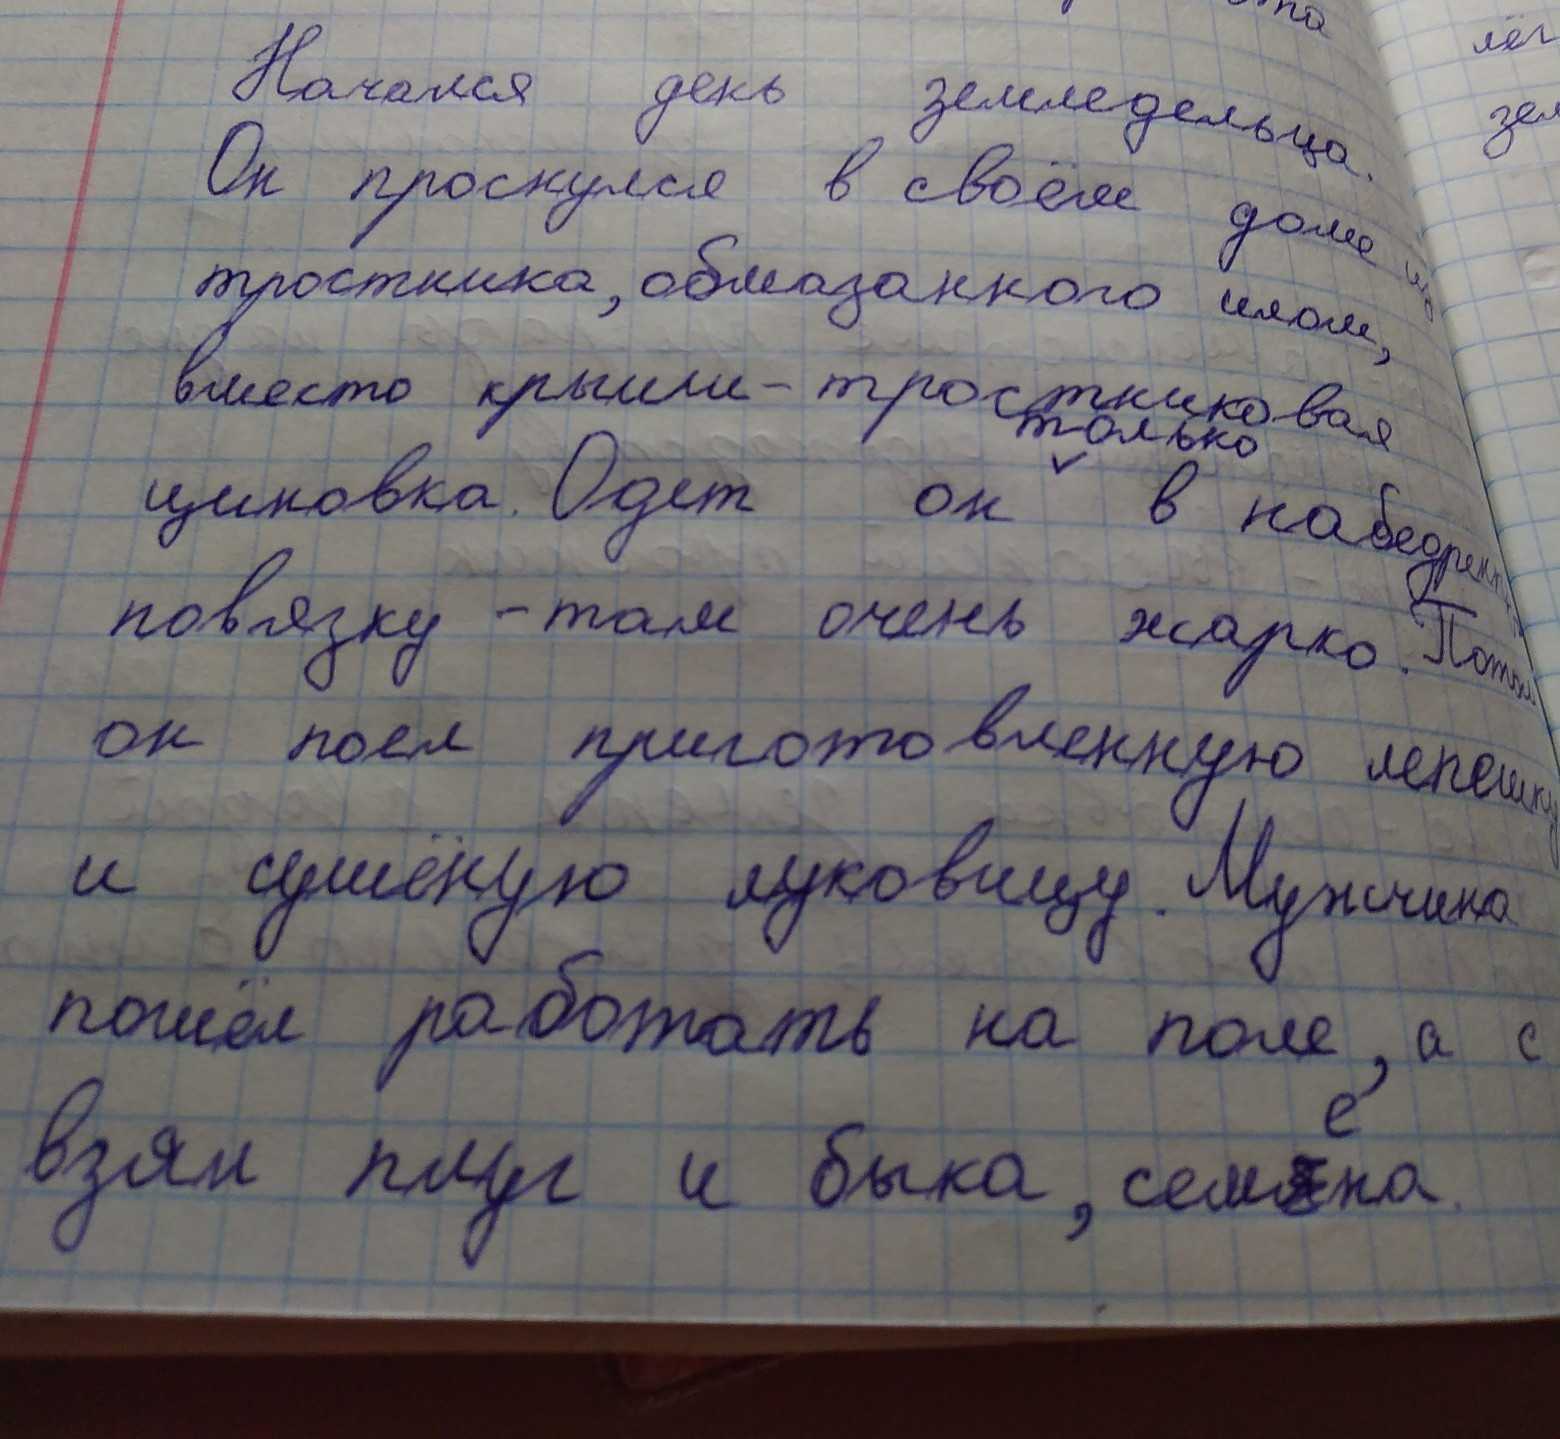 Начался день земледельца.
Он проснулся в своём доме из
тростника, обмазанного илом,
вместо крыши - тростниковая
только
циновка. Одет он в набедренн
повязку - там очень жарко. Потом
он поел приготовленную лепёшку
и сушёную луковицу. Мужчина
пошёл работать на поле, а с
взял плуг и быка, семена.
лёг
зем